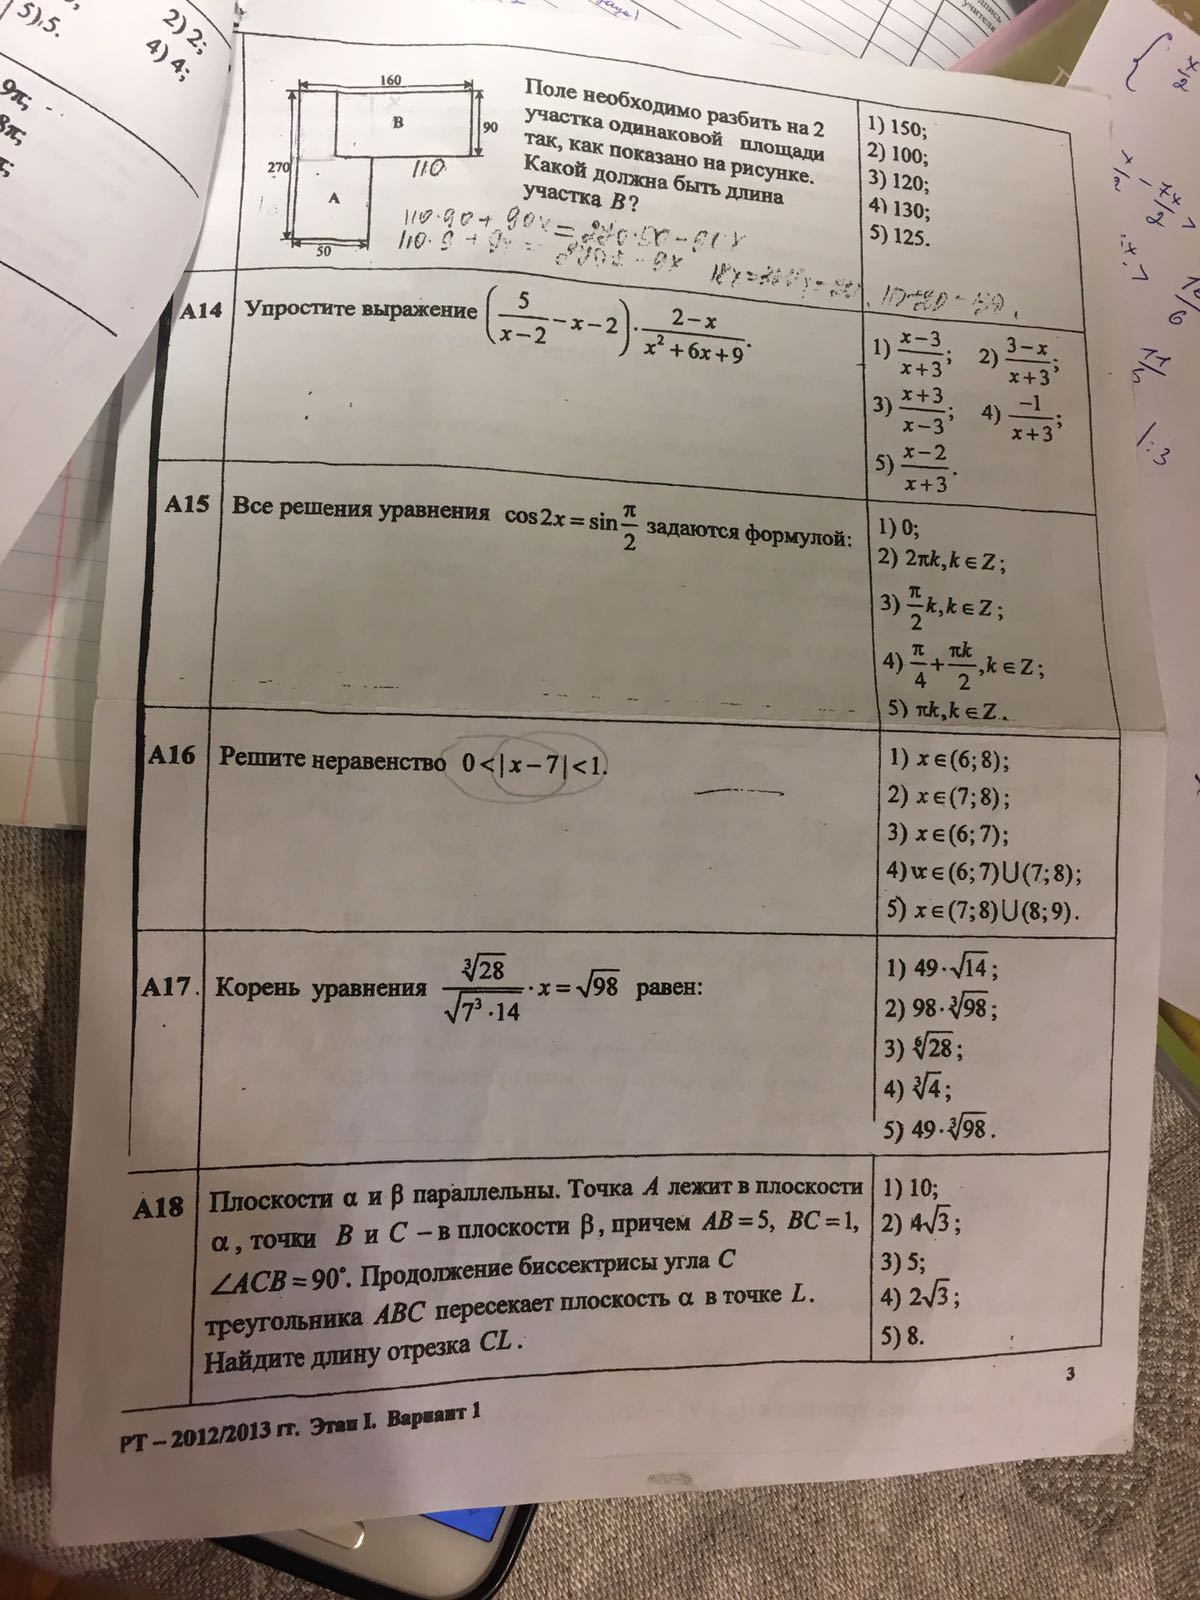 5) 5.
2) 2;
4) 4;
9π;
8π;
160
B
90
270
110
A
50
Поле необходимо разбить на 2
участка одинаковой площади
так, как показано на рисунке.
Какой должна быть длина
участка B?
1) 150;
2) 100;
3) 120;
4) 130;
5) 125.
A14
Упростите выражение (5/(x−2) − x − 2) · (2−x)/(x²+6x+9).
1) (x−3)/(x+3); 2) (3−x)/(x+3);
3) (x+3)/(x−3); 4) −1/(x+3);
5) (x−2)/(x+3).
A15
Все решения уравнения cos2x = sin π/2 задаются формулой:
1) 0;
2) 2πk, k ∈ Z;
3) π/2 k, k ∈ Z;
4) π/4 + πk/2, k ∈ Z;
5) πk, k ∈ Z.
A16
Решите неравенство 0 < |x − 7| < 1.
1) x ∈ (6; 8);
2) x ∈ (7; 8);
3) x ∈ (6; 7);
4) x ∈ (6; 7)⋃(7; 8);
5) x ∈ (7; 8)⋃(8; 9).
A17.
Корень уравнения ∛28/√(7³·14) · x = √98 равен:
1) 49·√14;
2) 98·∛98;
3) ⁶√28;
4) ∛4;
5) 49·∛98.
A18
Плоскости α и β параллельны. Точка A лежит в плоскости
α, точки B и C – в плоскости β, причем AB = 5, BC = 1,
∠ACB = 90°. Продолжение биссектрисы угла C
треугольника ABC пересекает плоскость α в точке L.
Найдите длину отрезка CL.
1) 10;
2) 4√3;
3) 5;
4) 2√3;
5) 8.
3
РТ – 2012/2013 гг. Этап I. Вариант 1